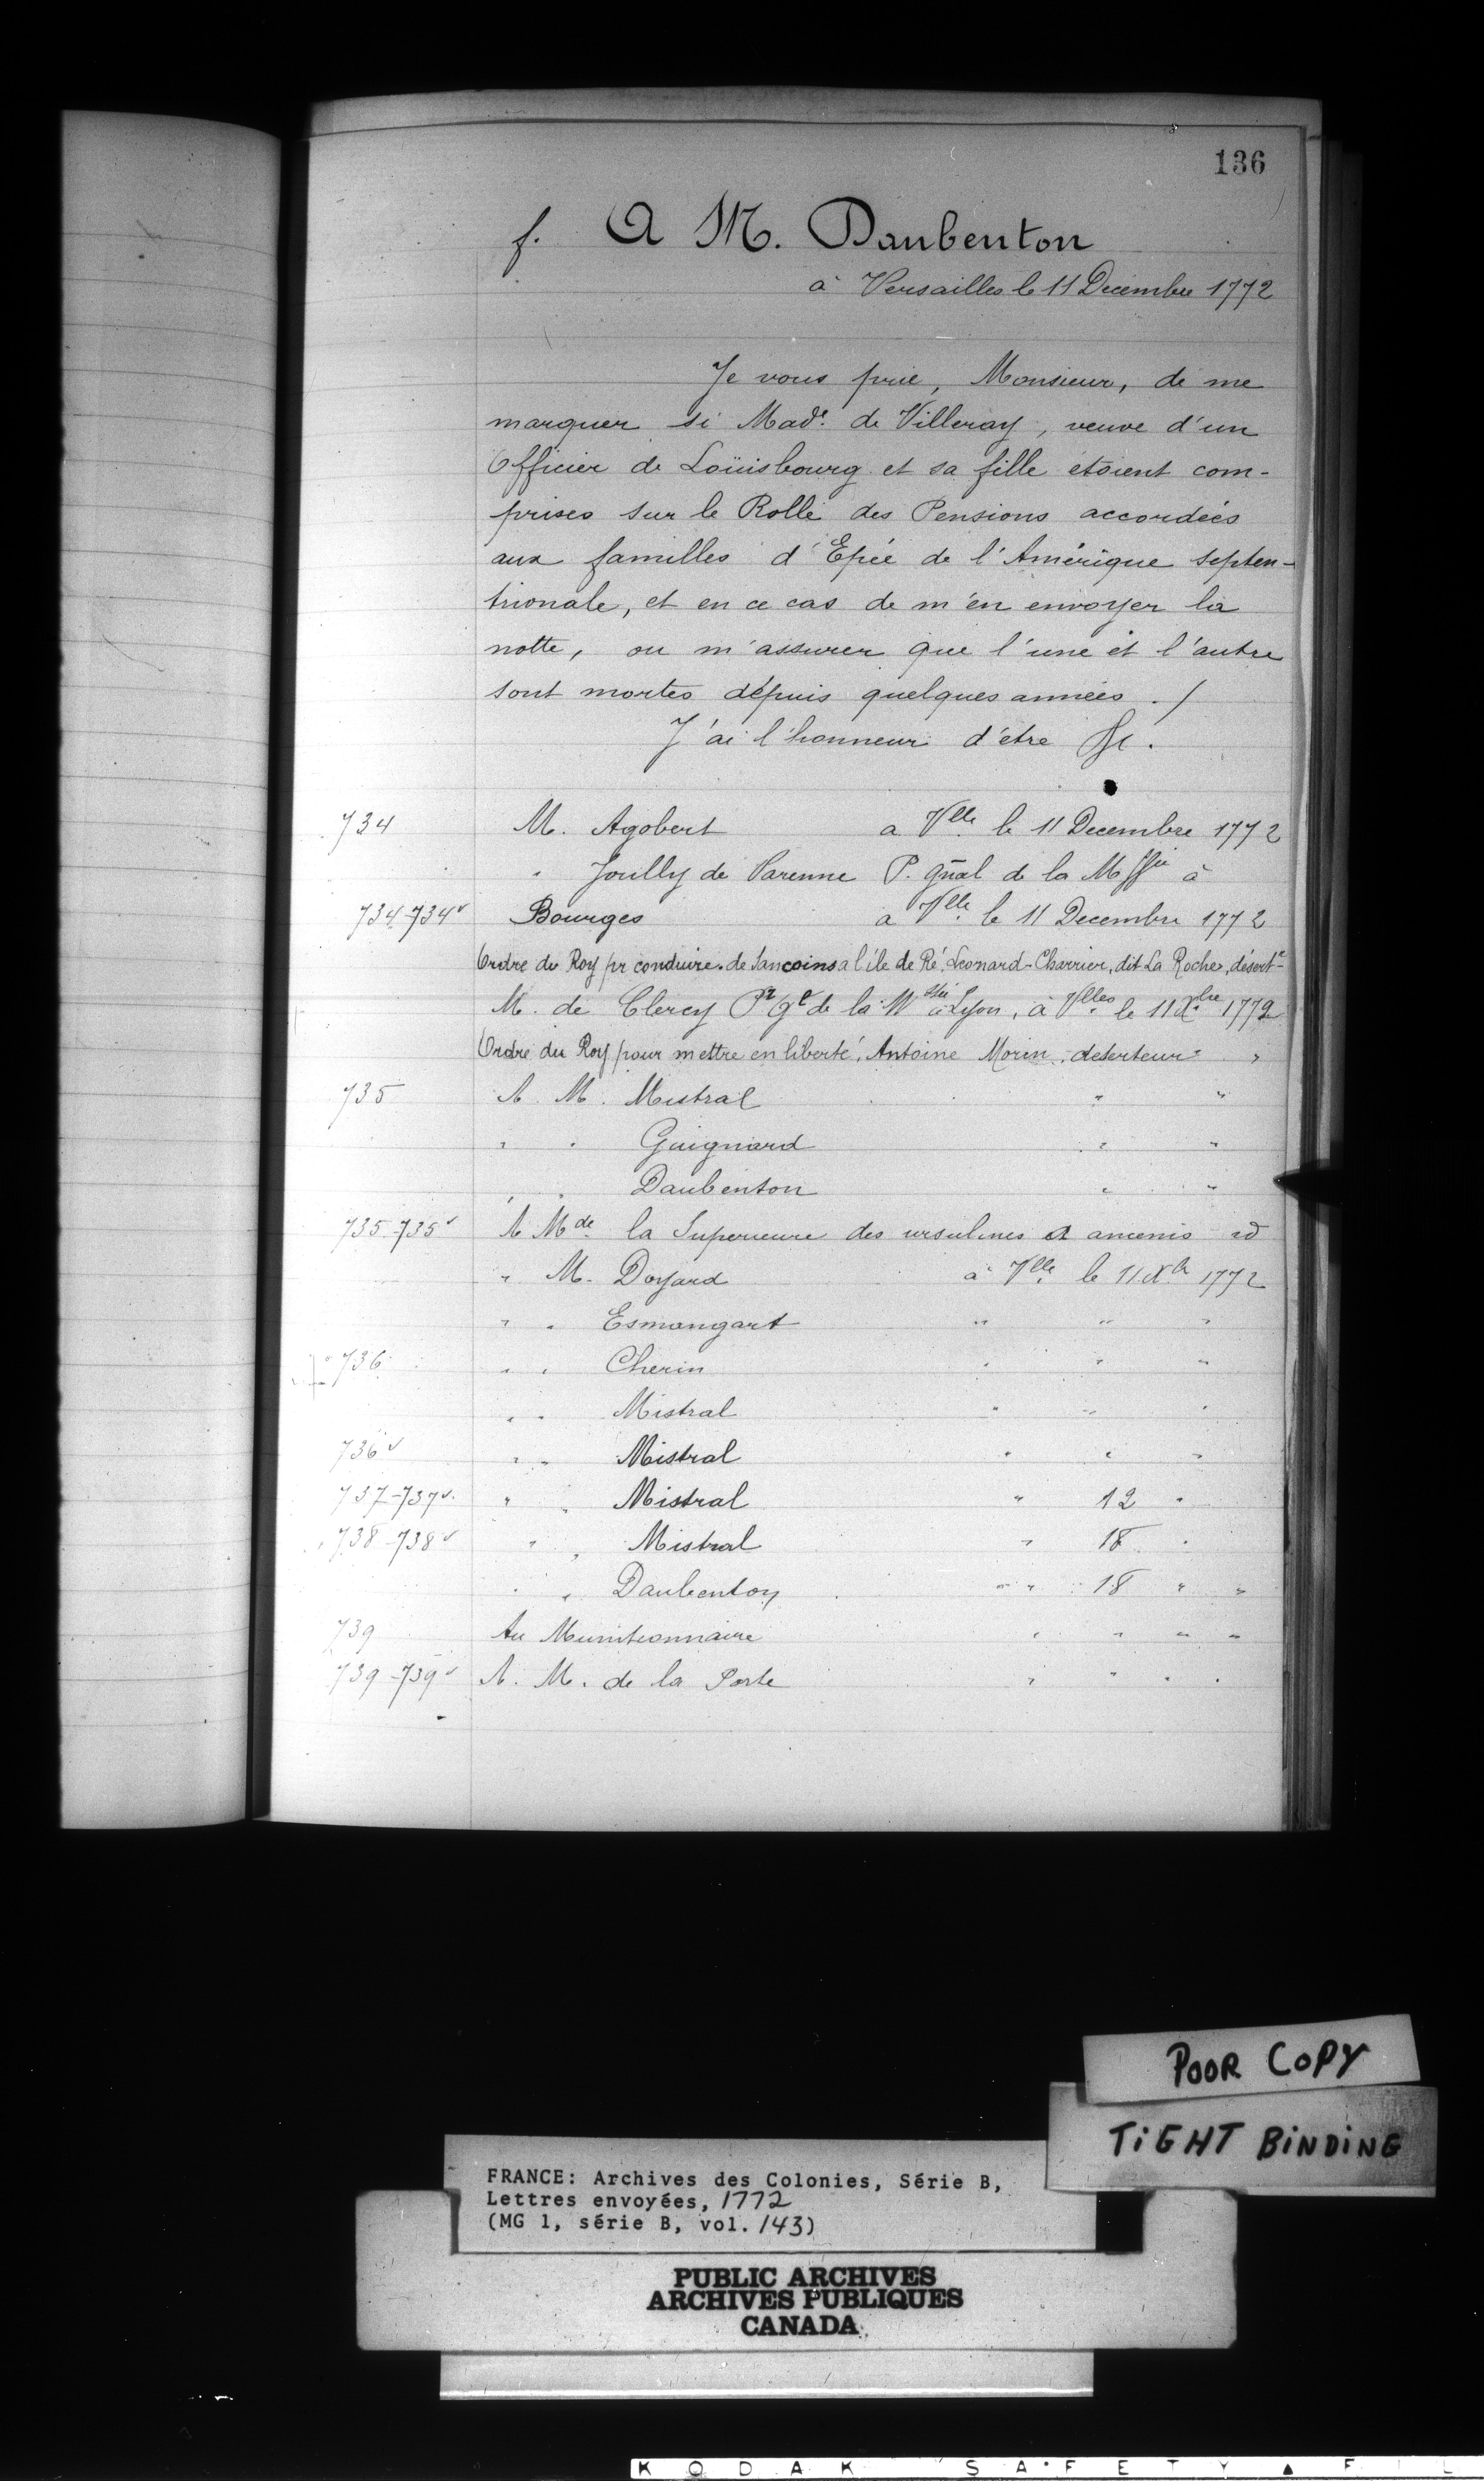 136
f. A M. Daubenton
à Versailles le 11 Decembre 1772
Je vous prie, Monsieur, de me
marquer si Made. de Villeray, veuve d'un
Officier de Loüisbourg et sa fille étoient com-
prises sur le Rolle des Pensions accordées
aux familles d'Epée de l'Amérique septen-
trionale, et en ce cas de m'en envoyer la
notte, ou m'assurer que l'une et l'autre
sont mortes dépuis quelques années ./
J'ai l'honneur d'etre &c.
734 M. Agobert a Vlle le 11 Decembre 1772
" Jouilly de Varenne P. gñal de la Mssée à
734-734v Bourges a Vlle le 11 Decembre 1772
Ordre du Roy pr conduire de Sancoins a l'île de Ré, Leonard-Charrier, dit La Roche, désertr
M. de Clercy Pr Gl de la Mssée à Lyon, à Vlles le 11 Xbre 1772
Ordre du Roy pour mettre en liberté, Antoine Morin, deserteur " "
735 A. M. Mistral " "
" " Guignard " "
" " Daubenton " "
735-735v A Mde la Superieure des ursulines a ancenis id
" M. Doyard à Vlle le 11 Xbr 1772
" " Esmangart " " "
736 " " Cherin " " "
" " Mistral " " "
736v " " Mistral " " "
737-737v. " " Mistral " 12 "
738-738v " " Mistral " 18 "
" " Daubenton " " 18 " "
739 Au Munitionnaire " " " "
739-739v A. M. de la Porte " " " "
POOR COPY
TIGHT BINDING
FRANCE: Archives des Colonies, Série B,
Lettres envoyées, 1772
(MG 1, série B, vol. 143)
PUBLIC ARCHIVES
ARCHIVES PUBLIQUES
CANADA
KODAK SAFETY ▲ FIL